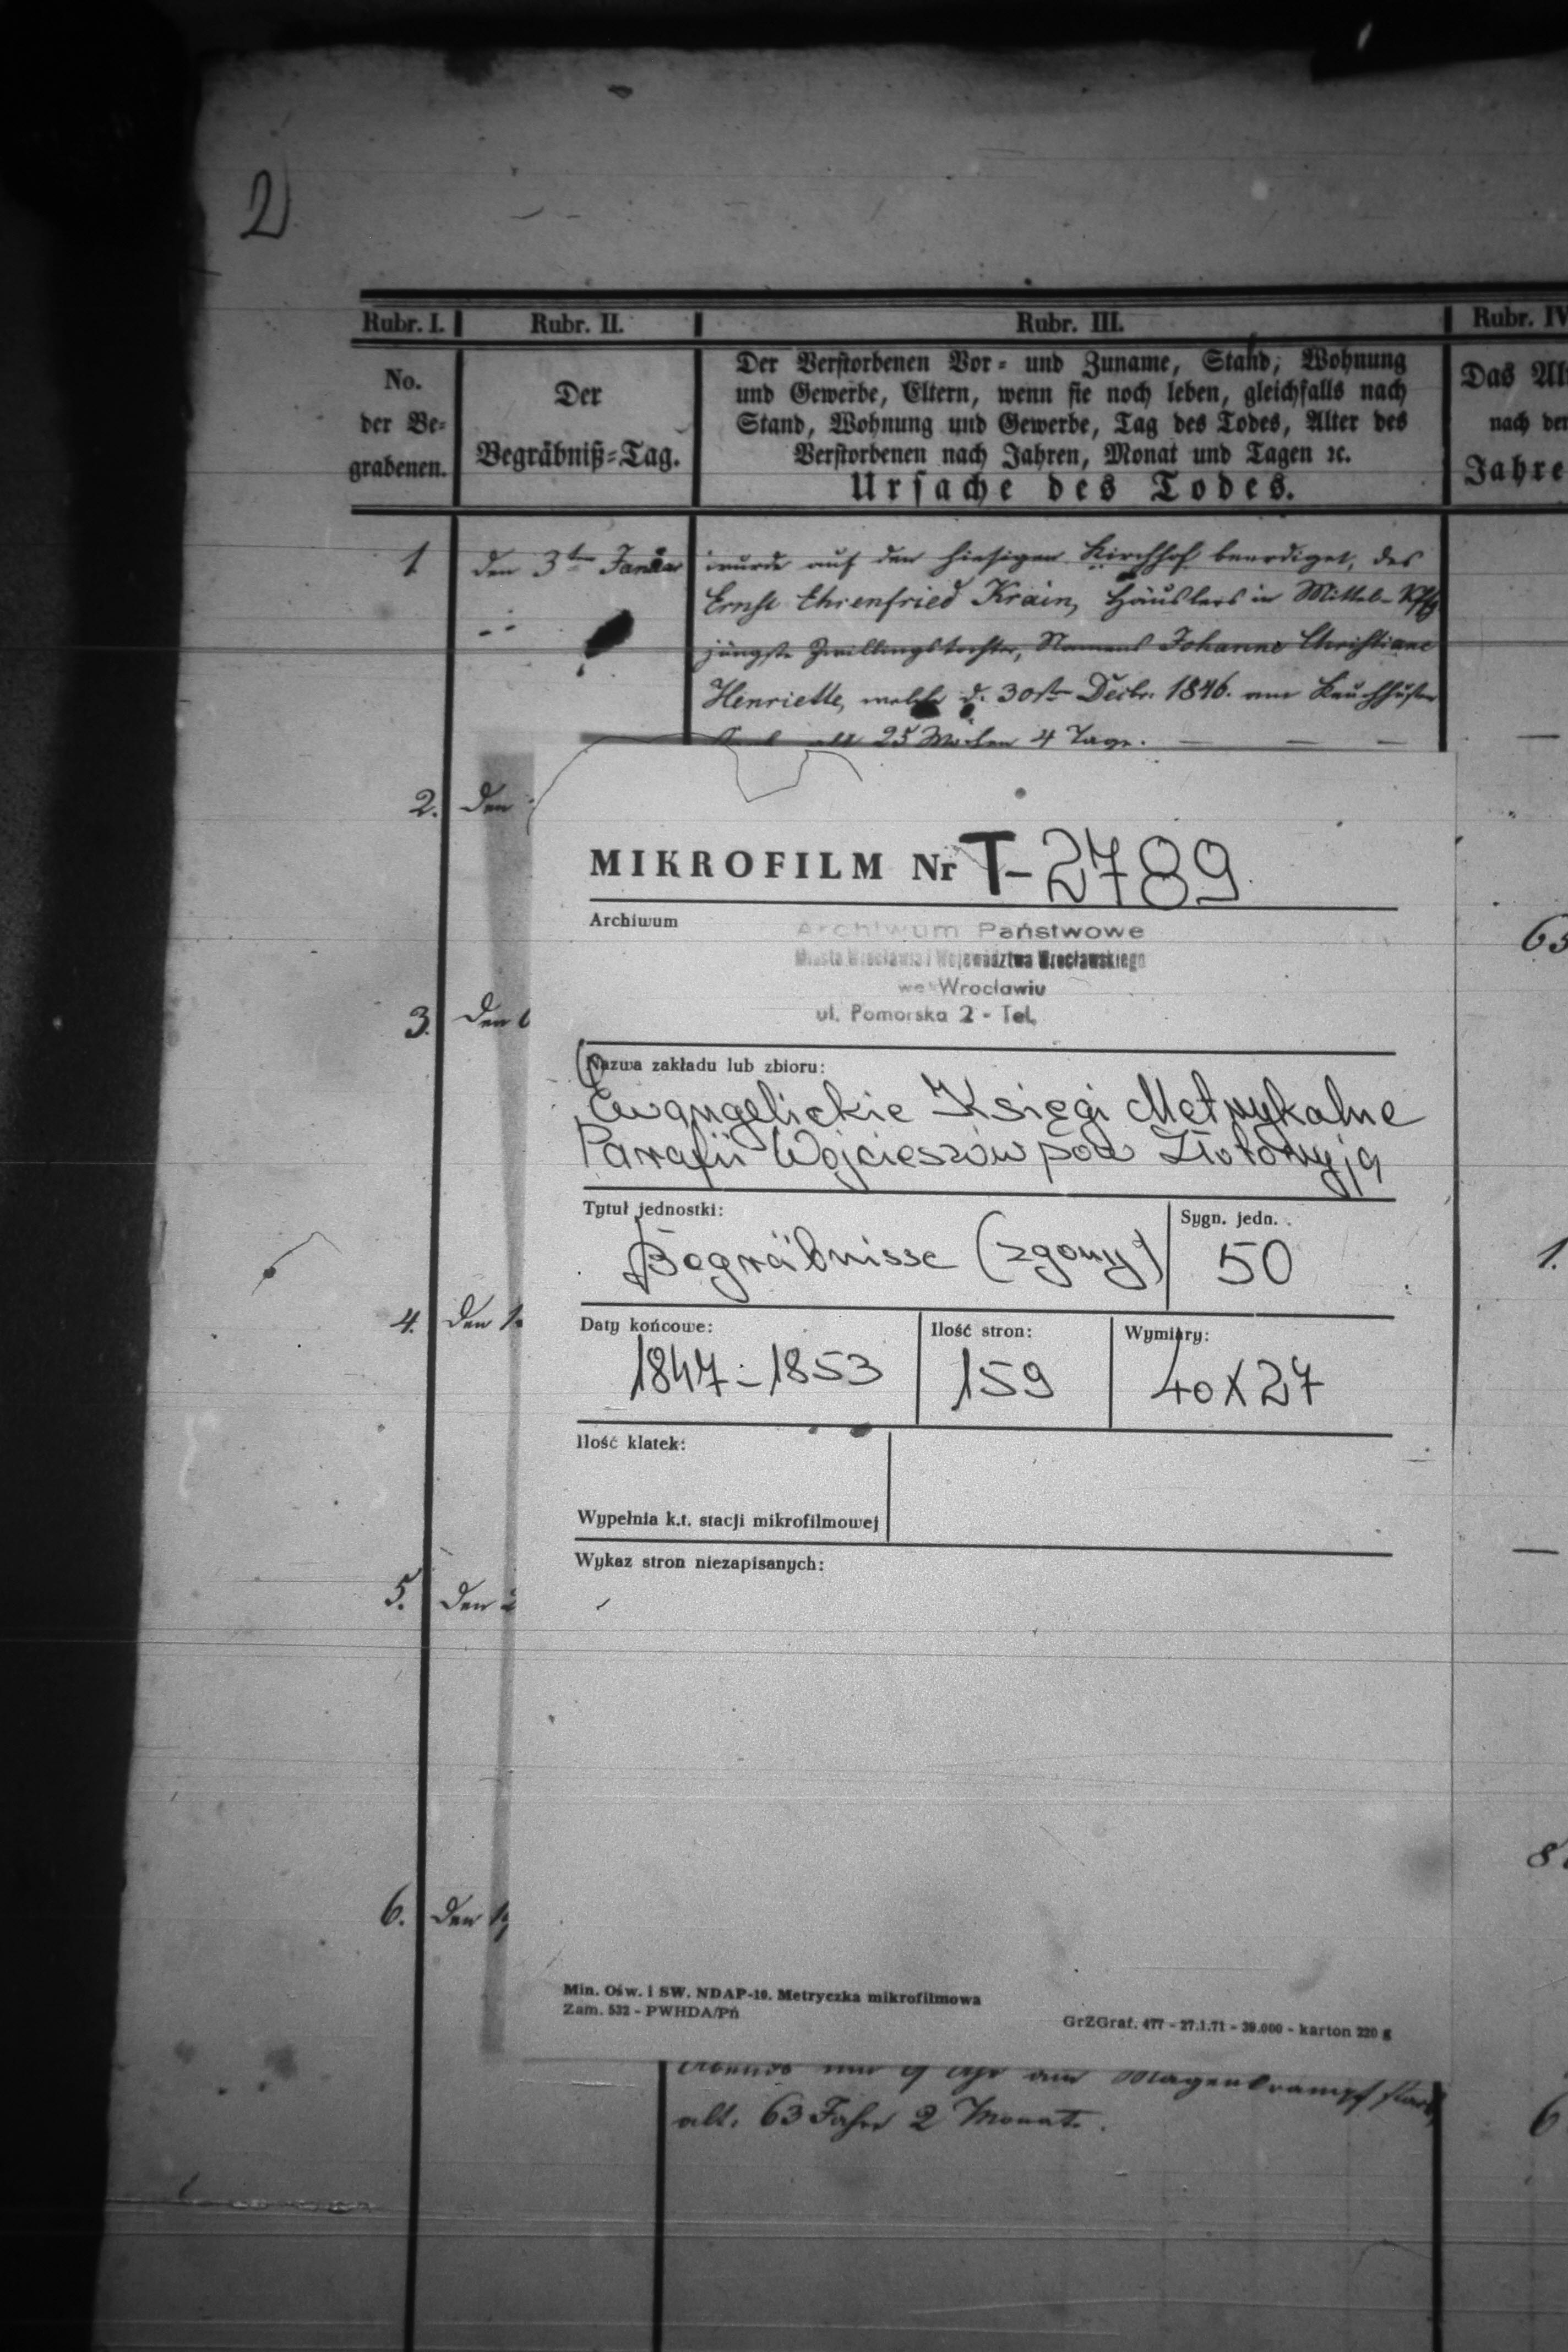 2
Rubr. I. Rubr. II. Rubr. III. Rubr. IV
No. der Be= grabenen.
Der Begräbniß=Tag.
Der Verstorbenen Vor= und Zuname, Stand, Wohnung
und Gewerbe, Eltern, wenn sie noch leben, gleichfalls nach
Stand, Wohnung und Gewerbe, Tag des Todes, Alter des
Verstorbenen nach Jahren, Monat und Tagen ꝛc.
Ursache des Todes.
Das Al
nach der
Jahre
1. den 3ten Januar wurde auf den hiesigen Kirchhof beerdiget, des
Ernst Ehrenfried Krain, Häuslers in Mittel-
jüngste Zwillingstochter, Namens Johanne Christiane
Henriette, welche d. 30st Decbr. 1846. am Keuchhusten
alt 25 Wochen 4 Tage.
2. Den
MIKROFILM Nr T-2789
Archiwum
Archiwum Państwowe
Miasta Wrocławia i Województwa Wrocławskiego
we Wrocławiu
ul. Pomorska 2 - Tel.
63
3. Den 6
Nazwa zakładu lub zbioru:
Ewangelickie Księgi Metrykalne
Parafii Wojcieszów pod Złotoryją
Tytuł jednostki: Sygn. jedn.
Begräbnisse (zgony) 50
1.
4. Den 1
Daty końcowe: Ilość stron: Wymiary:
1847-1853 159 40x27
Ilość klatek:
Wypełnia k.t. stacji mikrofilmowej
Wykaz stron niezapisanych:
5. Den 2
8
6. Den 1
Min. Ośw. i SW. NDAP-10. Metryczka mikrofilmowa
Zam. 532 - PWHDA/Pń
GrZGraf. 477 - 27.1.71 - 39.000 - karton 220 g
Abends um 9 Uhr am Magenkrampf starb,
alt. 63 Jahr 2 Monat.
6